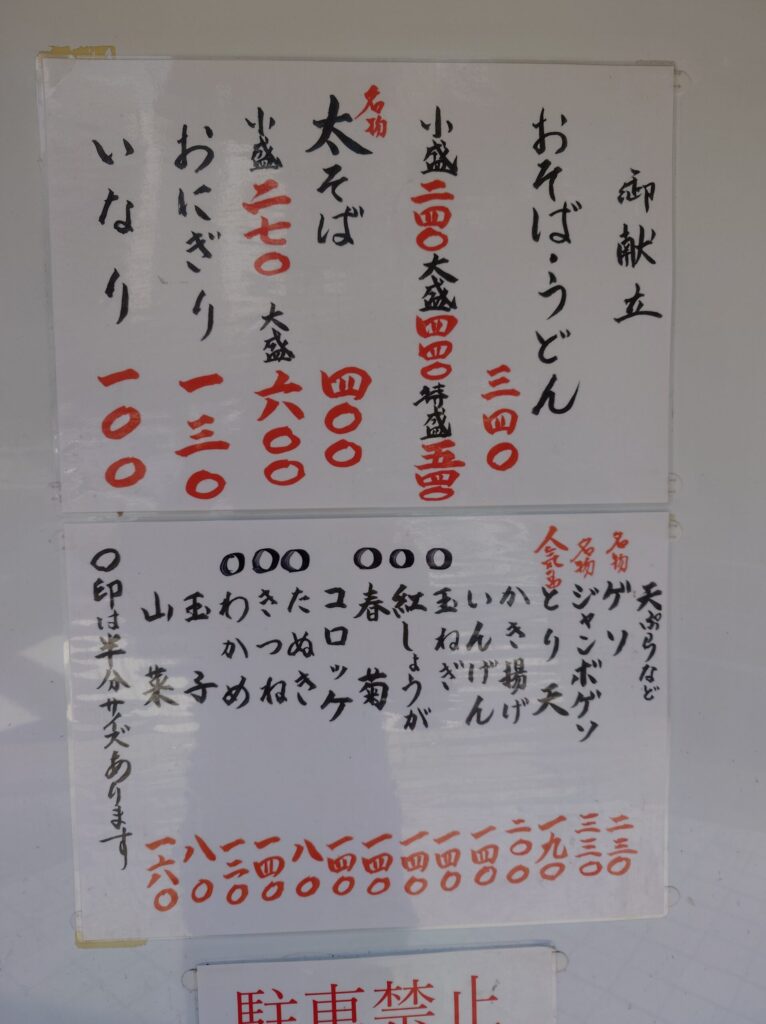 御献立
おそば・うどん
三四〇
小盛 二四〇 大盛 四四〇 特盛 五四〇
名物
太そば 四〇〇
小盛 二七〇 大盛 六〇〇
おにぎり 一三〇
いなり 一〇〇
天ぷらなど
名物 ゲソ 二三〇
名物 ジャンボゲソ 三三〇
とり天 一九〇
かき揚げ 二〇〇
いんげん 一四〇
〇 玉ねぎ 一四〇
〇 紅しょうが 一四〇
〇 春菊 一四〇
コロッケ 一四〇
〇 たぬき 八〇
〇 きつね 一四〇
〇 わかめ 一二〇
玉子 八〇
山菜 一六〇
〇印は半分サイズあります
駐車禁止